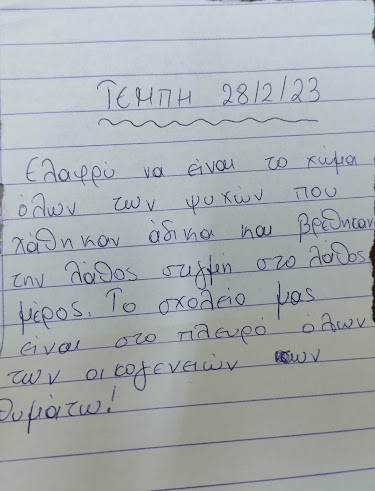 ΤΕΜΠΗ 28/2/23
Ελαφρύ να είναι το χώμα
όλων των ψυχών που
χάθηκαν άδικα και βρέθηκαν
την λάθος στιγμη στο λάθος
μέρος. Το σχολείο μας
είναι στο πλευρό όλων
των οικογενειών των
θυμάτω!